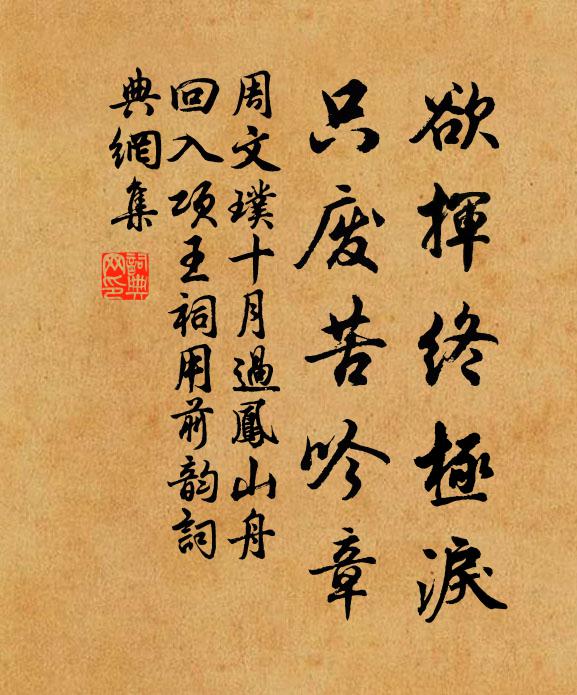 欲揮終極淚
只废苦吟章
周文璞十月過鳳山舟
回入項王祠用前韵詞
典網集
詞典
网印